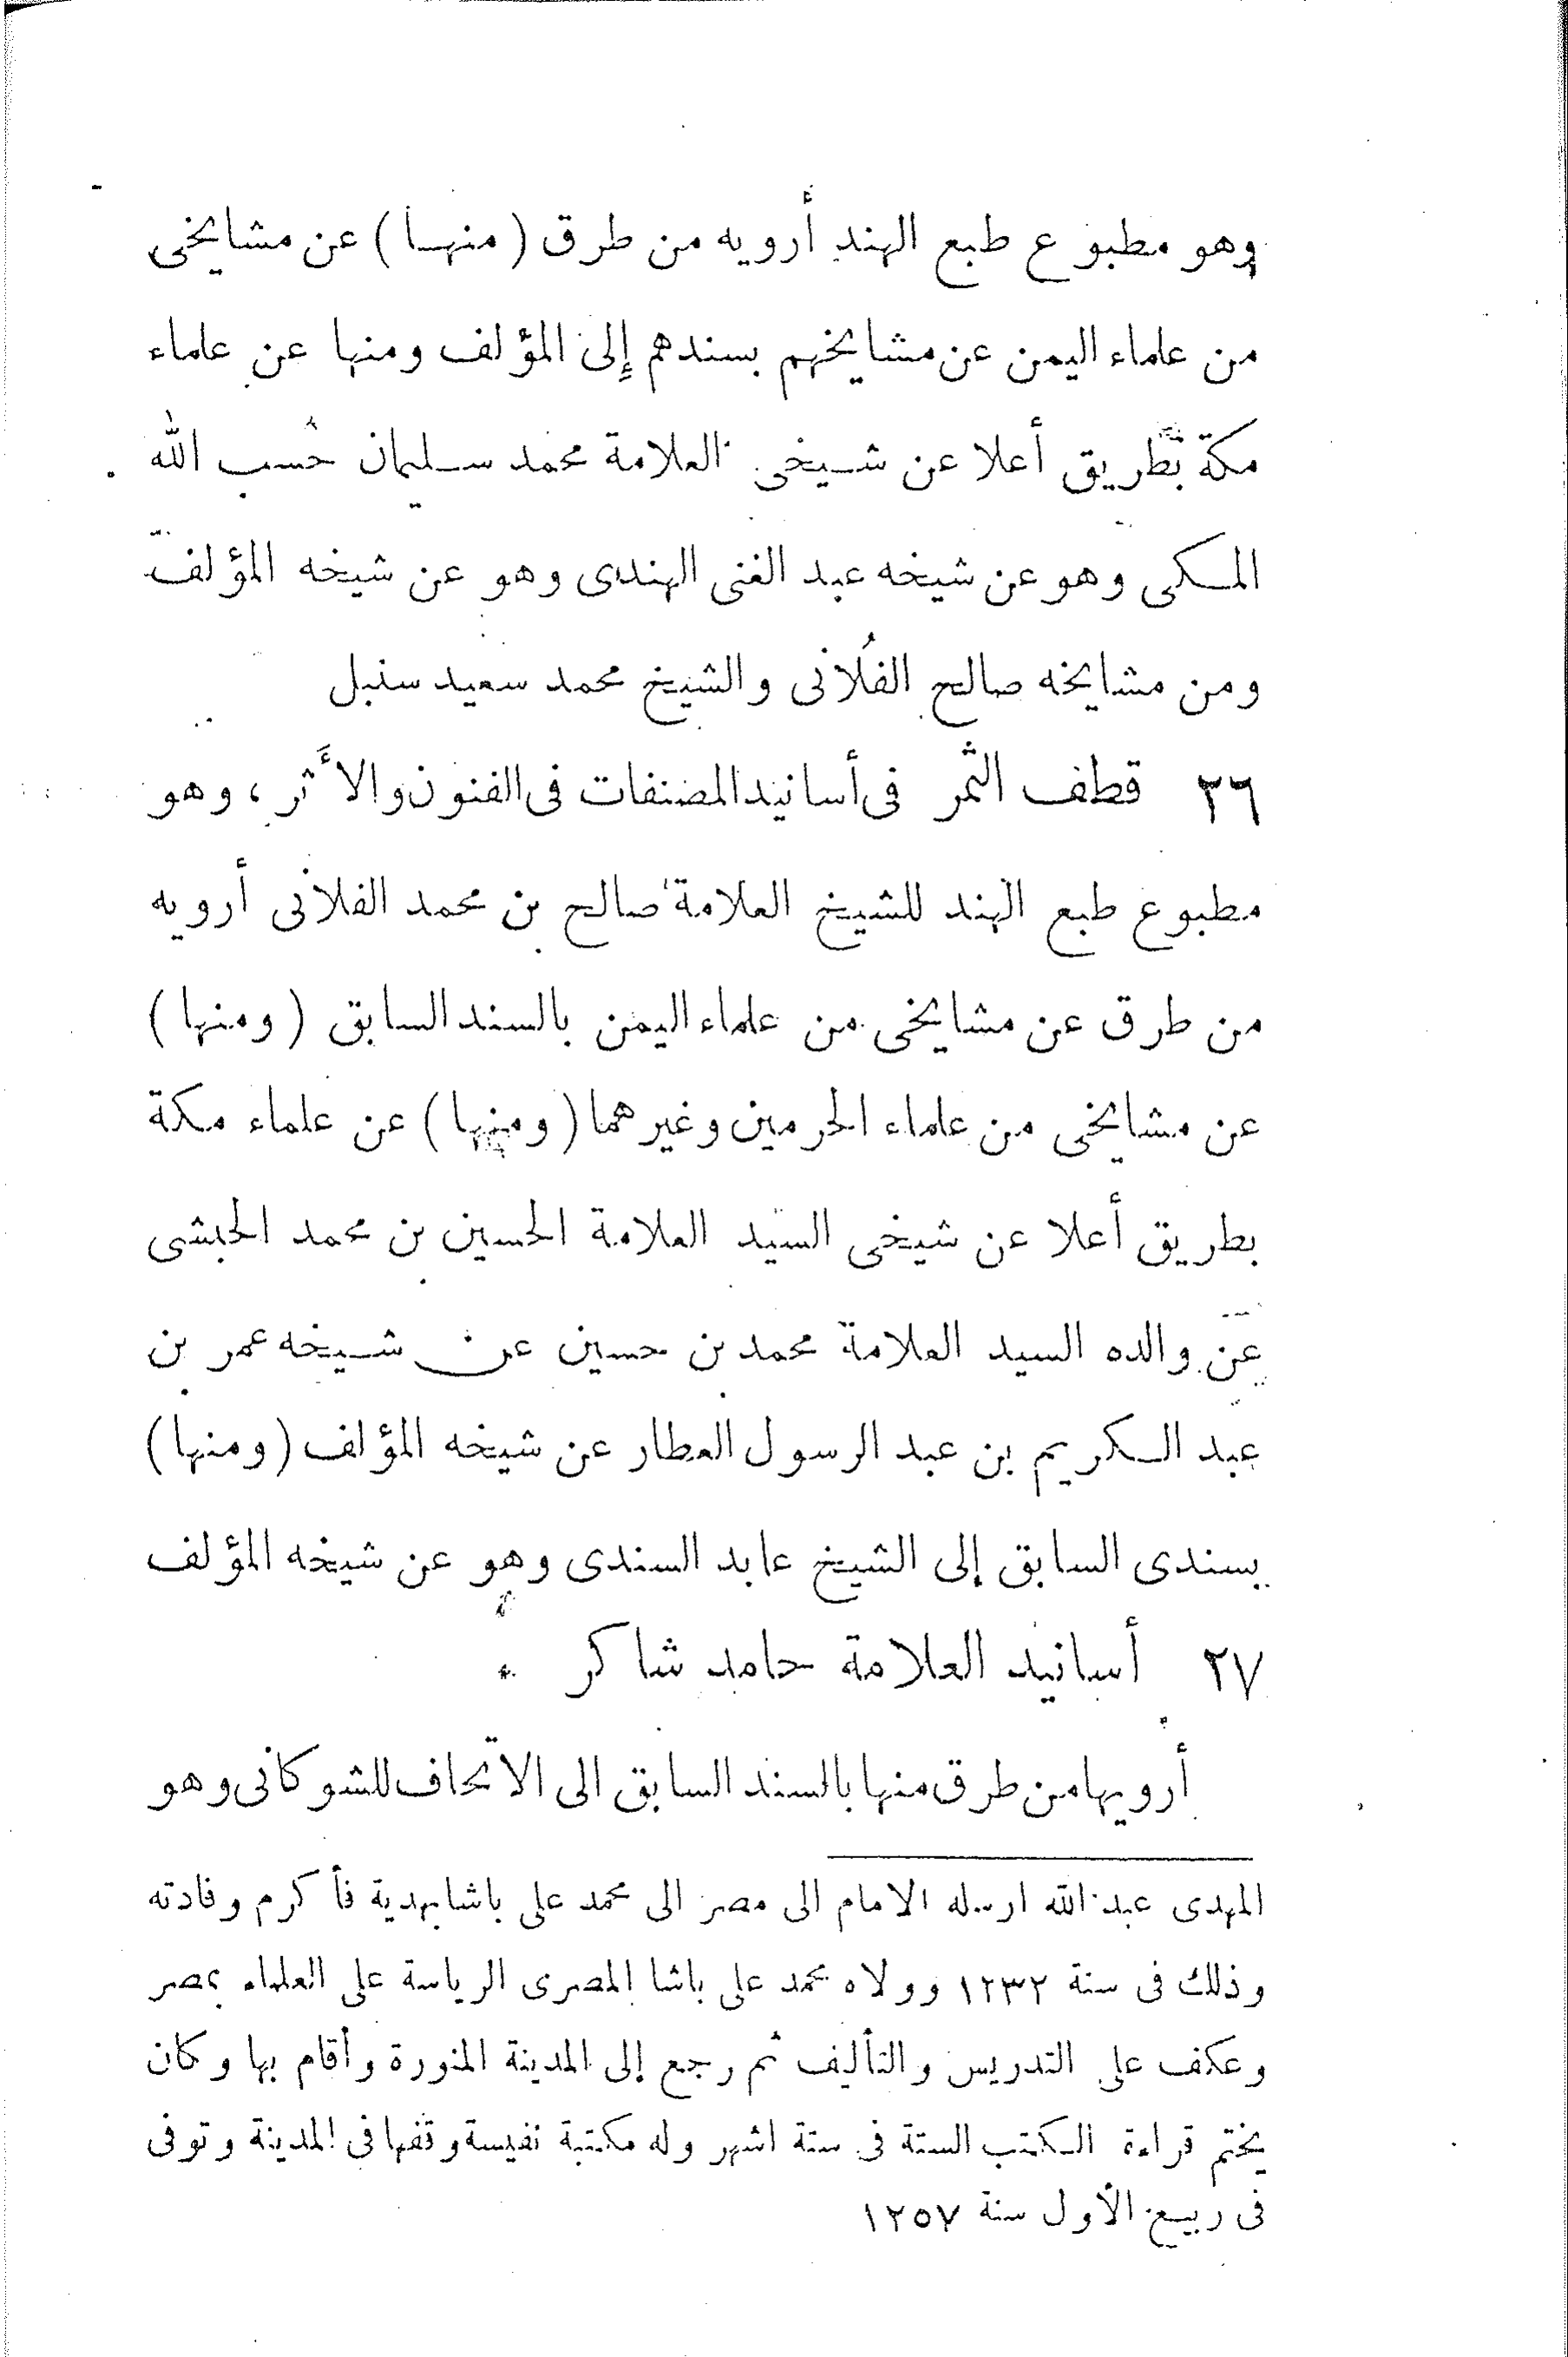 وهو مطبوع طبع الهند أرويه من طرق (منها) عن مشايخى
من علماء اليمن عن مشايخهم بسندهم إلى المؤلف ومنها عن علماء
مكة بطريق أعلا عن شيخى العلامة محمد سليمان حسب الله
المكى وهو عن شيخه عبد الغنى الهندى وهو عن شيخه المؤلف
ومن مشايخه صالح الفُلانى والشيخ محمد سعيد سنبل
٢٦ قطف الثمر فى أسانيد المصنفات فى الفنون والأثر، وهو
مطبوع طبع الهند للشيخ العلامة صالح بن محمد الفلانى أرويه
من طرق عن مشايخى من علماء اليمن بالسند السابق (ومنها)
عن مشايخى من علماء الحرمين وغيرهما (ومنها) عن علماء مكة
بطريق أعلا عن شيخى السيد العلامة الحسين بن محمد الحبشى
عن والده السيد العلامة محمد بن حسين عن شيخه عمر بن
عبد الكريم بن عبد الرسول العطار عن شيخه المؤلف (ومنها)
بسندى السابق إلى الشيخ عابد السندى وهو عن شيخه المؤلف
٢٧ أسانيد العلامة حامد شاكر
أرويها من طرق منها بالسند السابق الى الاتحاف للشوكانى وهو
المهدى عبد الله ارسله الامام الى مصر الى محمد على باشا بهدية فأكرم وفادته
وذلك فى سنة ١٢٣٢ وولاه محمد على باشا المصرى الرياسة على العلماء بمصر
وعكف على التدريس والتأليف ثم رجع إلى المدينة المنورة وأقام بها وكان
يختم قراءة الكتب الستة فى ستة اشهر وله مكتبة نفيسة وقفها فى المدينة وتوفى
فى ربيع الأول سنة ١٢٥٧